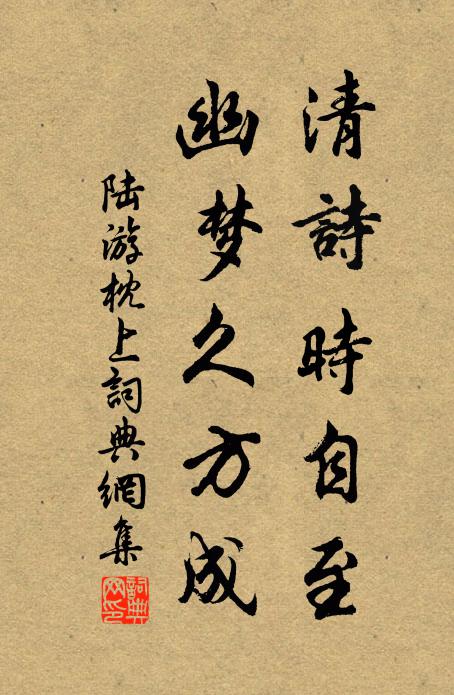 清詩時自至
幽梦久方成
陆游枕上詞典網集
詞典网印